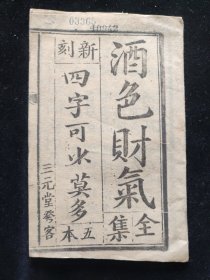 03362
新刻
酒色財氣
全集
四字可少莫多
五本
三元堂發客